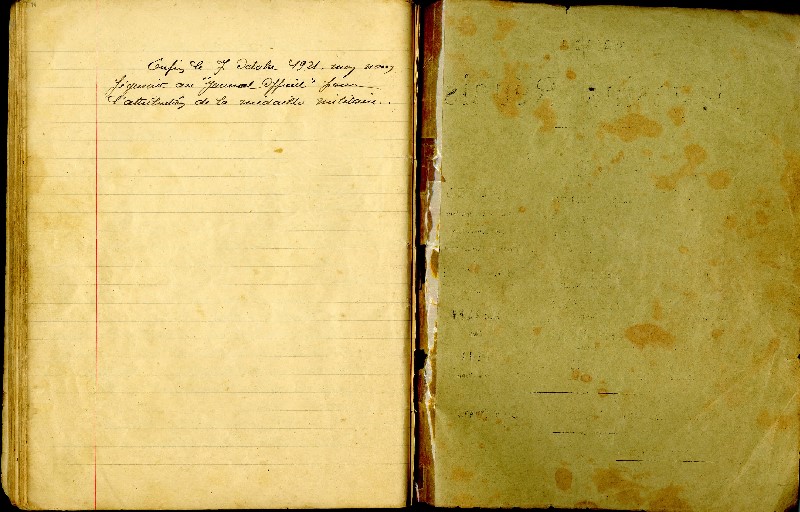 Enfin le 7 Octobre 1921 mon nom
figurait au "Journal Officiel" pour
l'attribution de la médaille militaire..